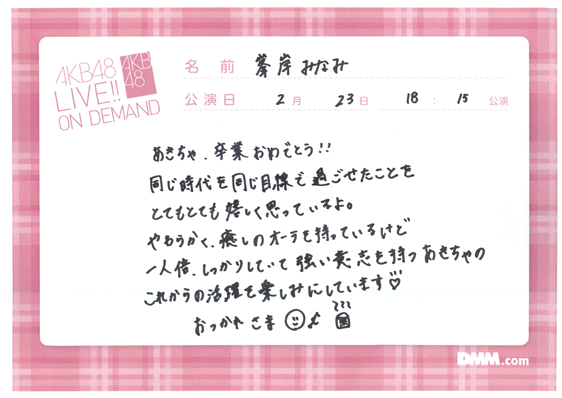 AKB48
LIVE!!
ON DEMAND
AKB
48
名前 峯岸みなみ
公演日 2月 23日 18:15 公演
あきちゃ、卒業おめでとう!!
同じ時代を同じ目線で過ごせたことを
とてもとても嬉しく思っているよ。
やわらかく、癒しのオーラを持っているけど
一人倍、しっかりしていて強い意志を持つあきちゃの
これからの活躍を楽しみにしています♡
おつかれさま
DMM.com